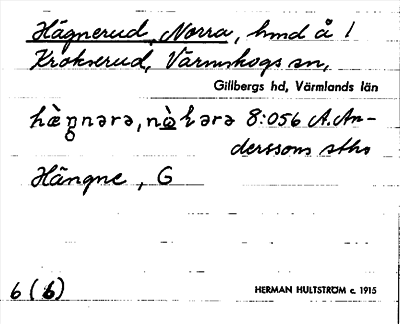 Hägnerud, Norra, hmd å 1
Krokserud, Värmskogs sn,
Gillbergs hd, Värmlands län
8:056 A. An-
derssons sths
Hängne, G
6 (6)
HERMAN HULTSTRÖM c. 1915